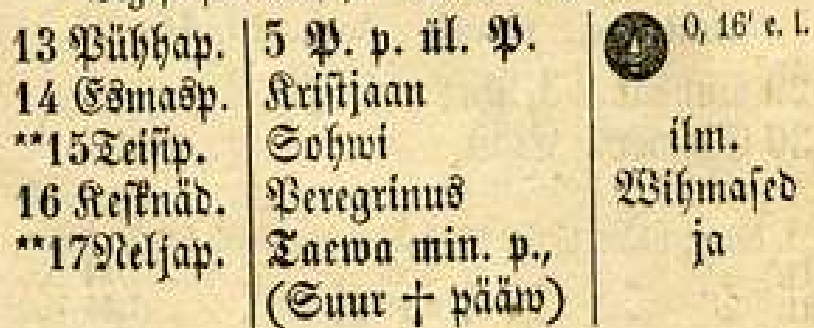 13 Pühhap. 5 P. p. ül. P. 0, 16' e. l.
14 Esmasp. Kristjaan
**15Teisip. Sohwi ilm.
16 Kesknäd. Peregrinus Wihmased
**17Neljap. Taewa min. p., ja
(Suur † pääw)